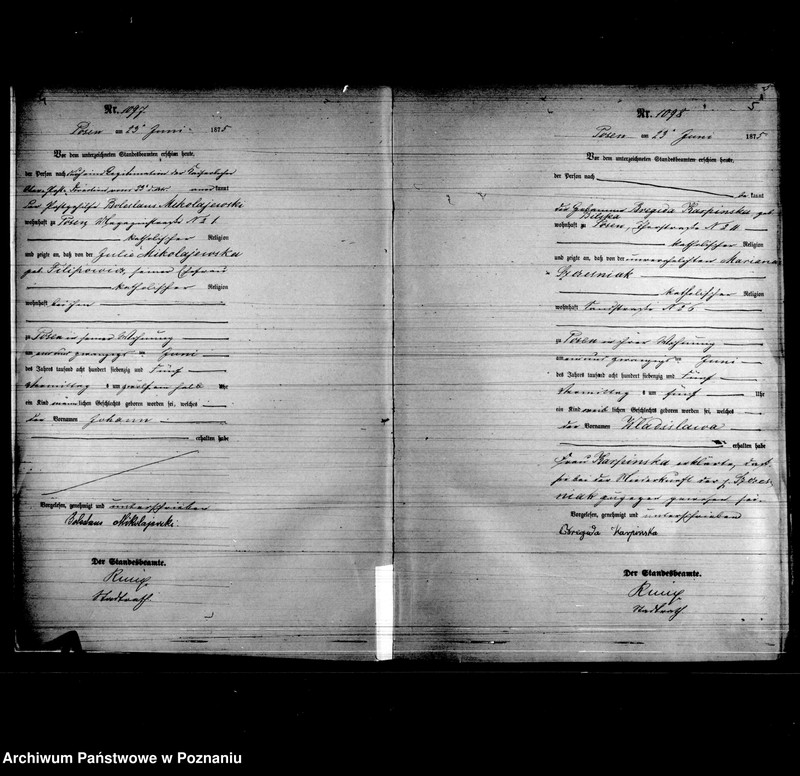 Nr. 1097
Posen am 23 Juni 1875
Vor dem unterzeichneten Standesbeamten erschien heute,
der Person nach durch eine Legitimation der
kannt
Der Boleslaus Mikolajewski
wohnhaft zu Posen N 1
katholischer Religion
und zeigte an, daß von der Julie Mikolajewska
geb. Filipowicz, seiner Ehefrau
katholischer Religion
wohnhaft bei ihm
zu Posen in seiner Wohnung
am ein und zwanzigs Juni
des Jahres tausend acht hundert siebenzig und fünf
Vormittag s um halb Uhr
ein Kind männlichen Geschlechts geboren worden sei, welches
der Vornamen Johann
erhalten habe
Vorgelesen, genehmigt und unterschrieben
Boleslaus Mikolajewski
Der Standesbeamte.
Stadtrath.
5
Nr. 1098
Posen am 23 Juni 1875
Vor dem unterzeichneten Standesbeamten erschien heute,
der Person nach
be kannt
die Hebamme Bregida Karpinska geb
Bilska
wohnhaft zu Posen, N
katholischer Religion
und zeigte an, daß von der unverehelichten Marianna
katholischer Religion
wohnhaft Sandstraße N 5
zu Posen in ihrer Wohnung
am ein und zwanzigs Juni
des Jahres tausend acht hundert siebenzig und fünf
Vormittag s um fünf Uhr
ein Kind weib lichen Geschlechts geboren worden sei, welches
der Vornamen Wladislawa
erhalten habe
Frau Karpinska erklärte, daß
sie bei der Niederkunft der
zugegen gewesen sei.
Vorgelesen, genehmigt und unterschrieben
Bregida Karpinska
Der Standesbeamte.
Stadtrath
Archiwum Państwowe w Poznaniu